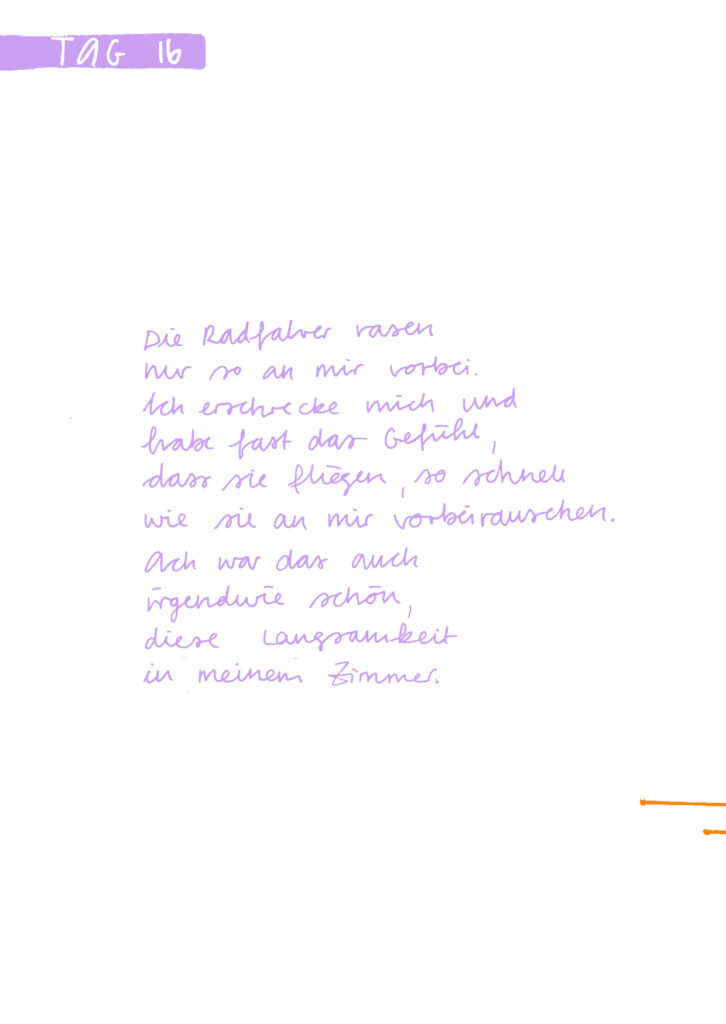 TAG 16
Die Radfahrer rasen
nur so an mir vorbei.
Ich erschrecke mich und
habe fast das Gefühl,
dass sie fliegen, so schnell
wie sie an mir vorbeirauschen.
Ach war das auch
irgendwie schön,
diese Langsamkeit
in meinem Zimmer.